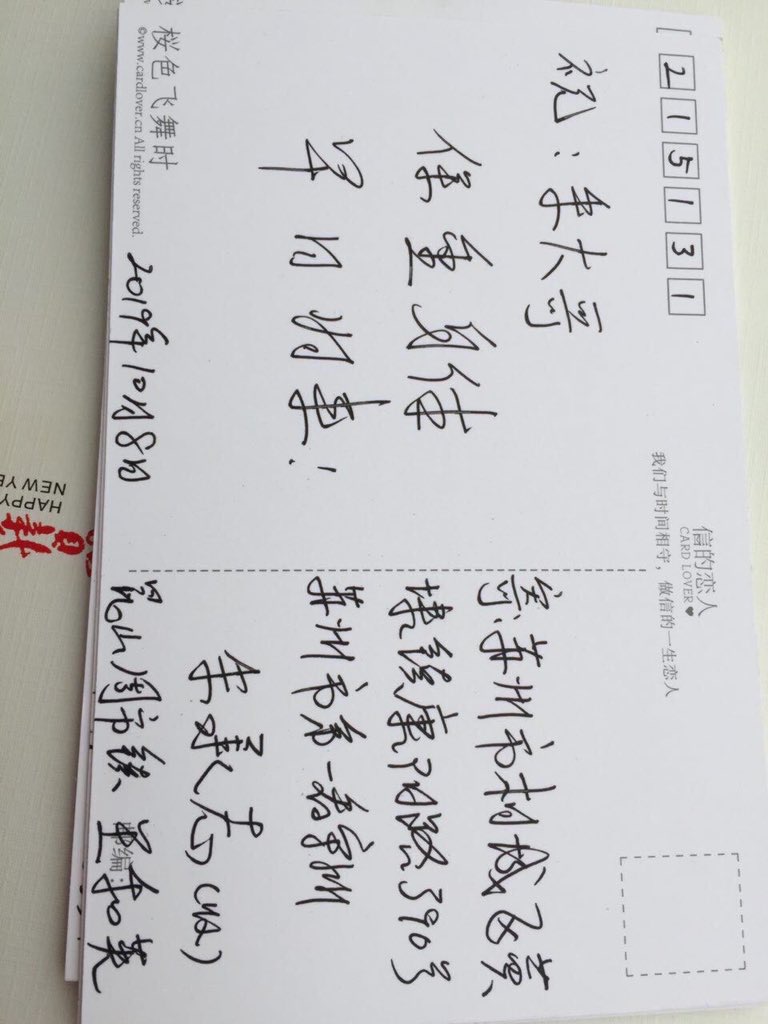 215131
祝：朱大哥
保重身体
早日归来！
2019年10月8日
桜色飞舞时
©www.cardlover.cn All rights reserved.
信的恋人
CARD LOVER♥
我们与时间相守，做信的一生恋人
寄：苏州市相城区黄
埭镇康阳路390号
苏州市第一看守所
朱承志（收）
昆山周市镇 和英
邮编：
HAPPY
NEW YE